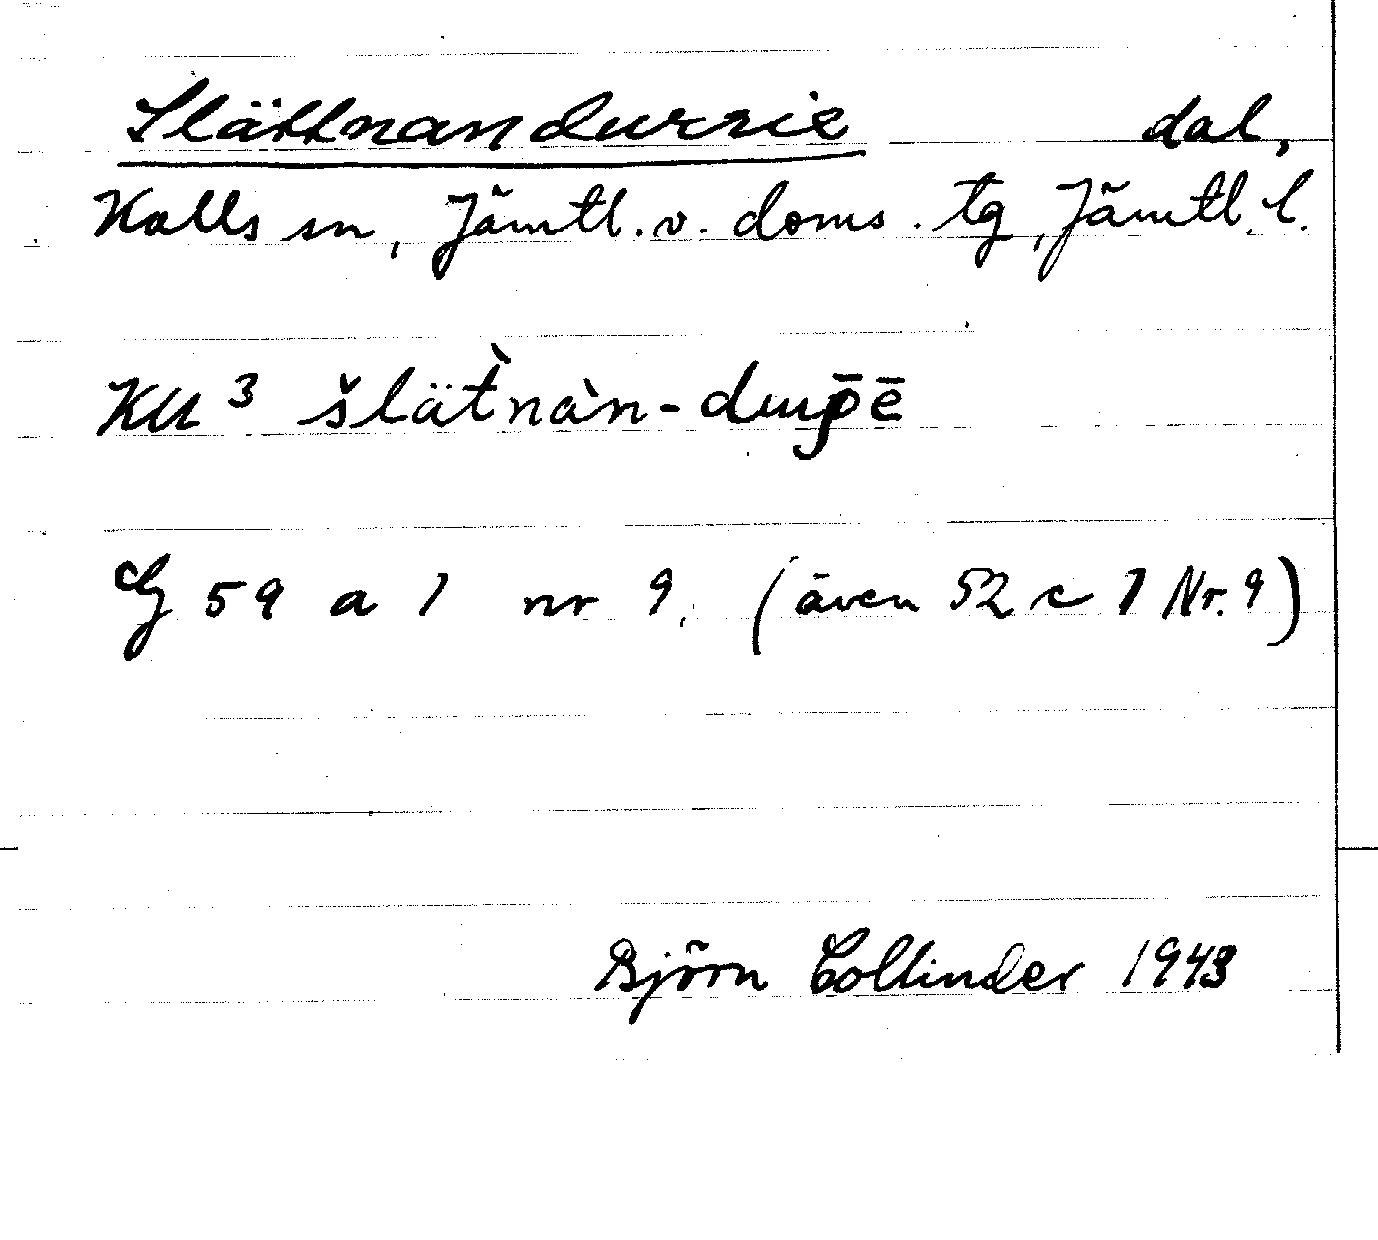 Slättnandurrie dal,
Kalls sn, Jämtl. v. doms. tg, Jämtl. l.
KU³ šlät̀nàn-
G 59 a 1 nr 9. (även 52 c 1 Nr. 9)
Björn Collinder 1943